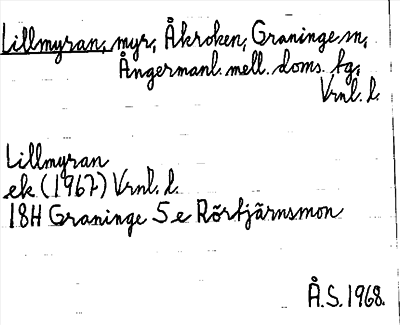 Lillmyran, myr, Åkroken, Graninge sn,
Ångermanl. mell. doms. tg.
Vrnl. l.
Lillmyran
ek (1967) Vrnl. l.
18H Graninge 5e Rörtjärnsmon
Å.S. 1968.